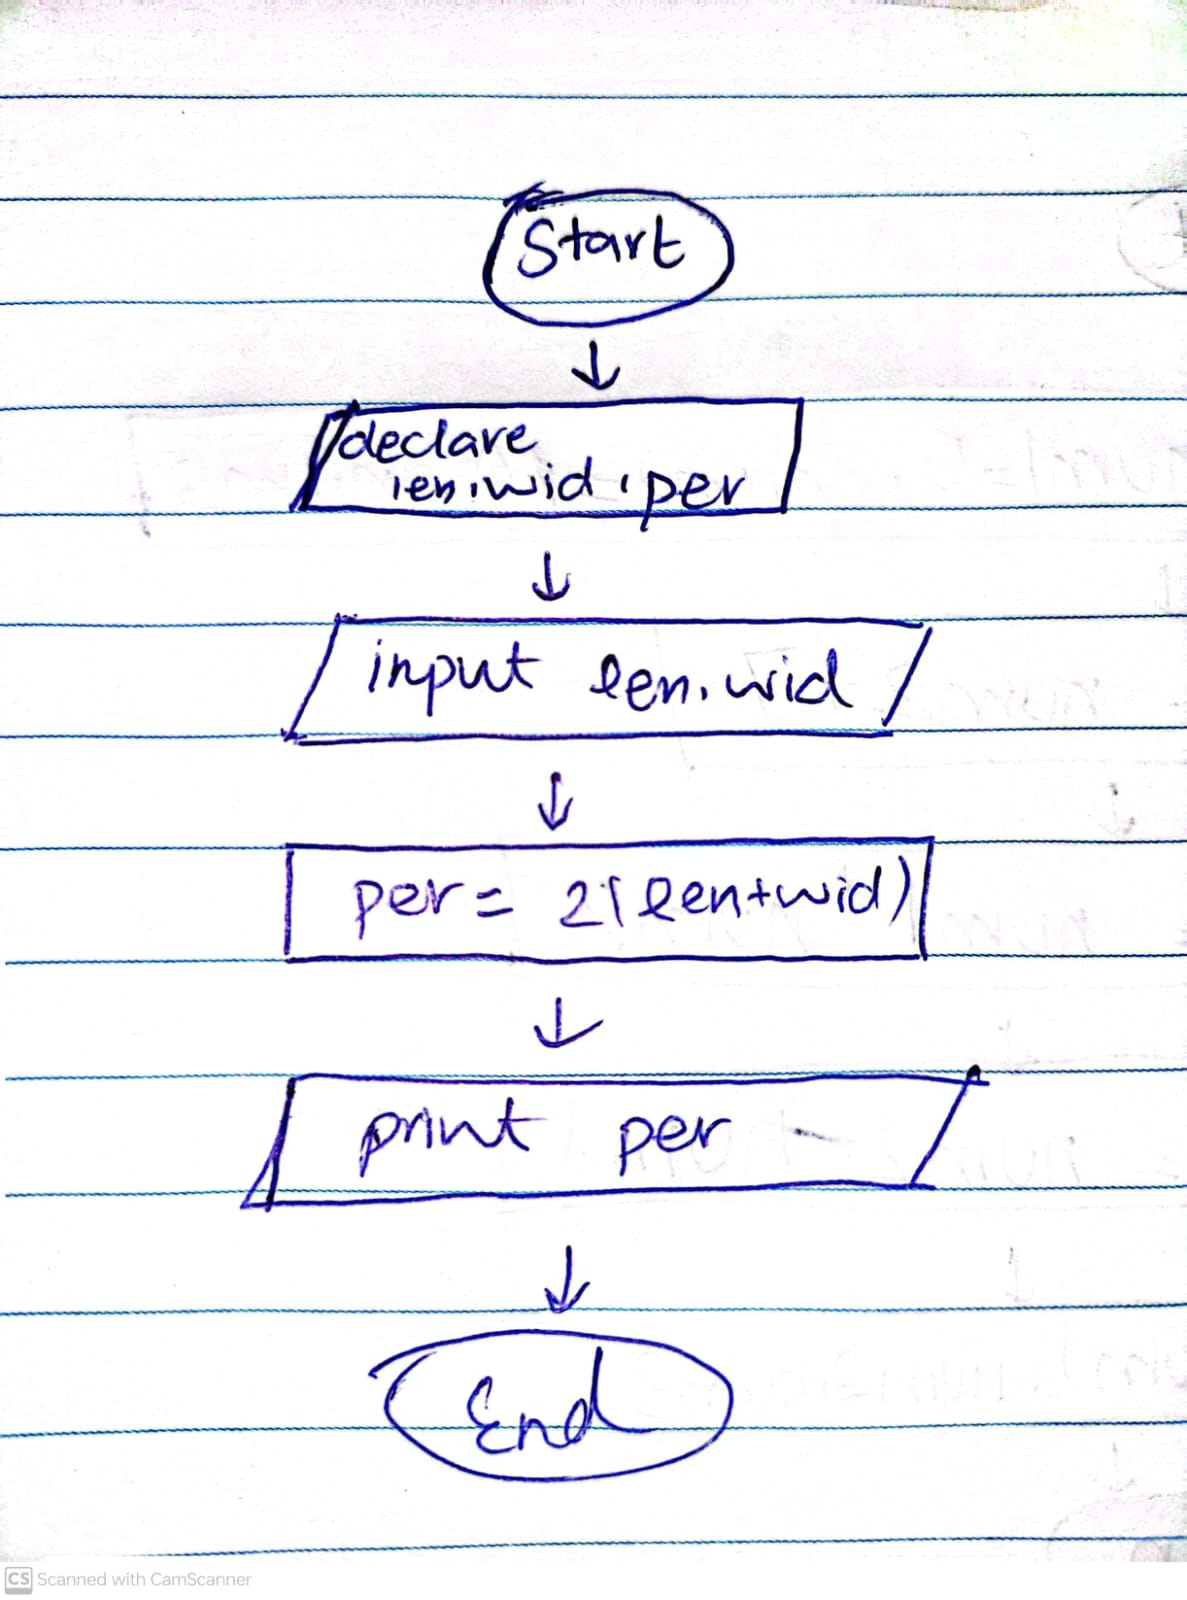 Start
declare
len, wid, per
input len, wid
per = 2(len+wid)
print per
End
CS Scanned with CamScanner